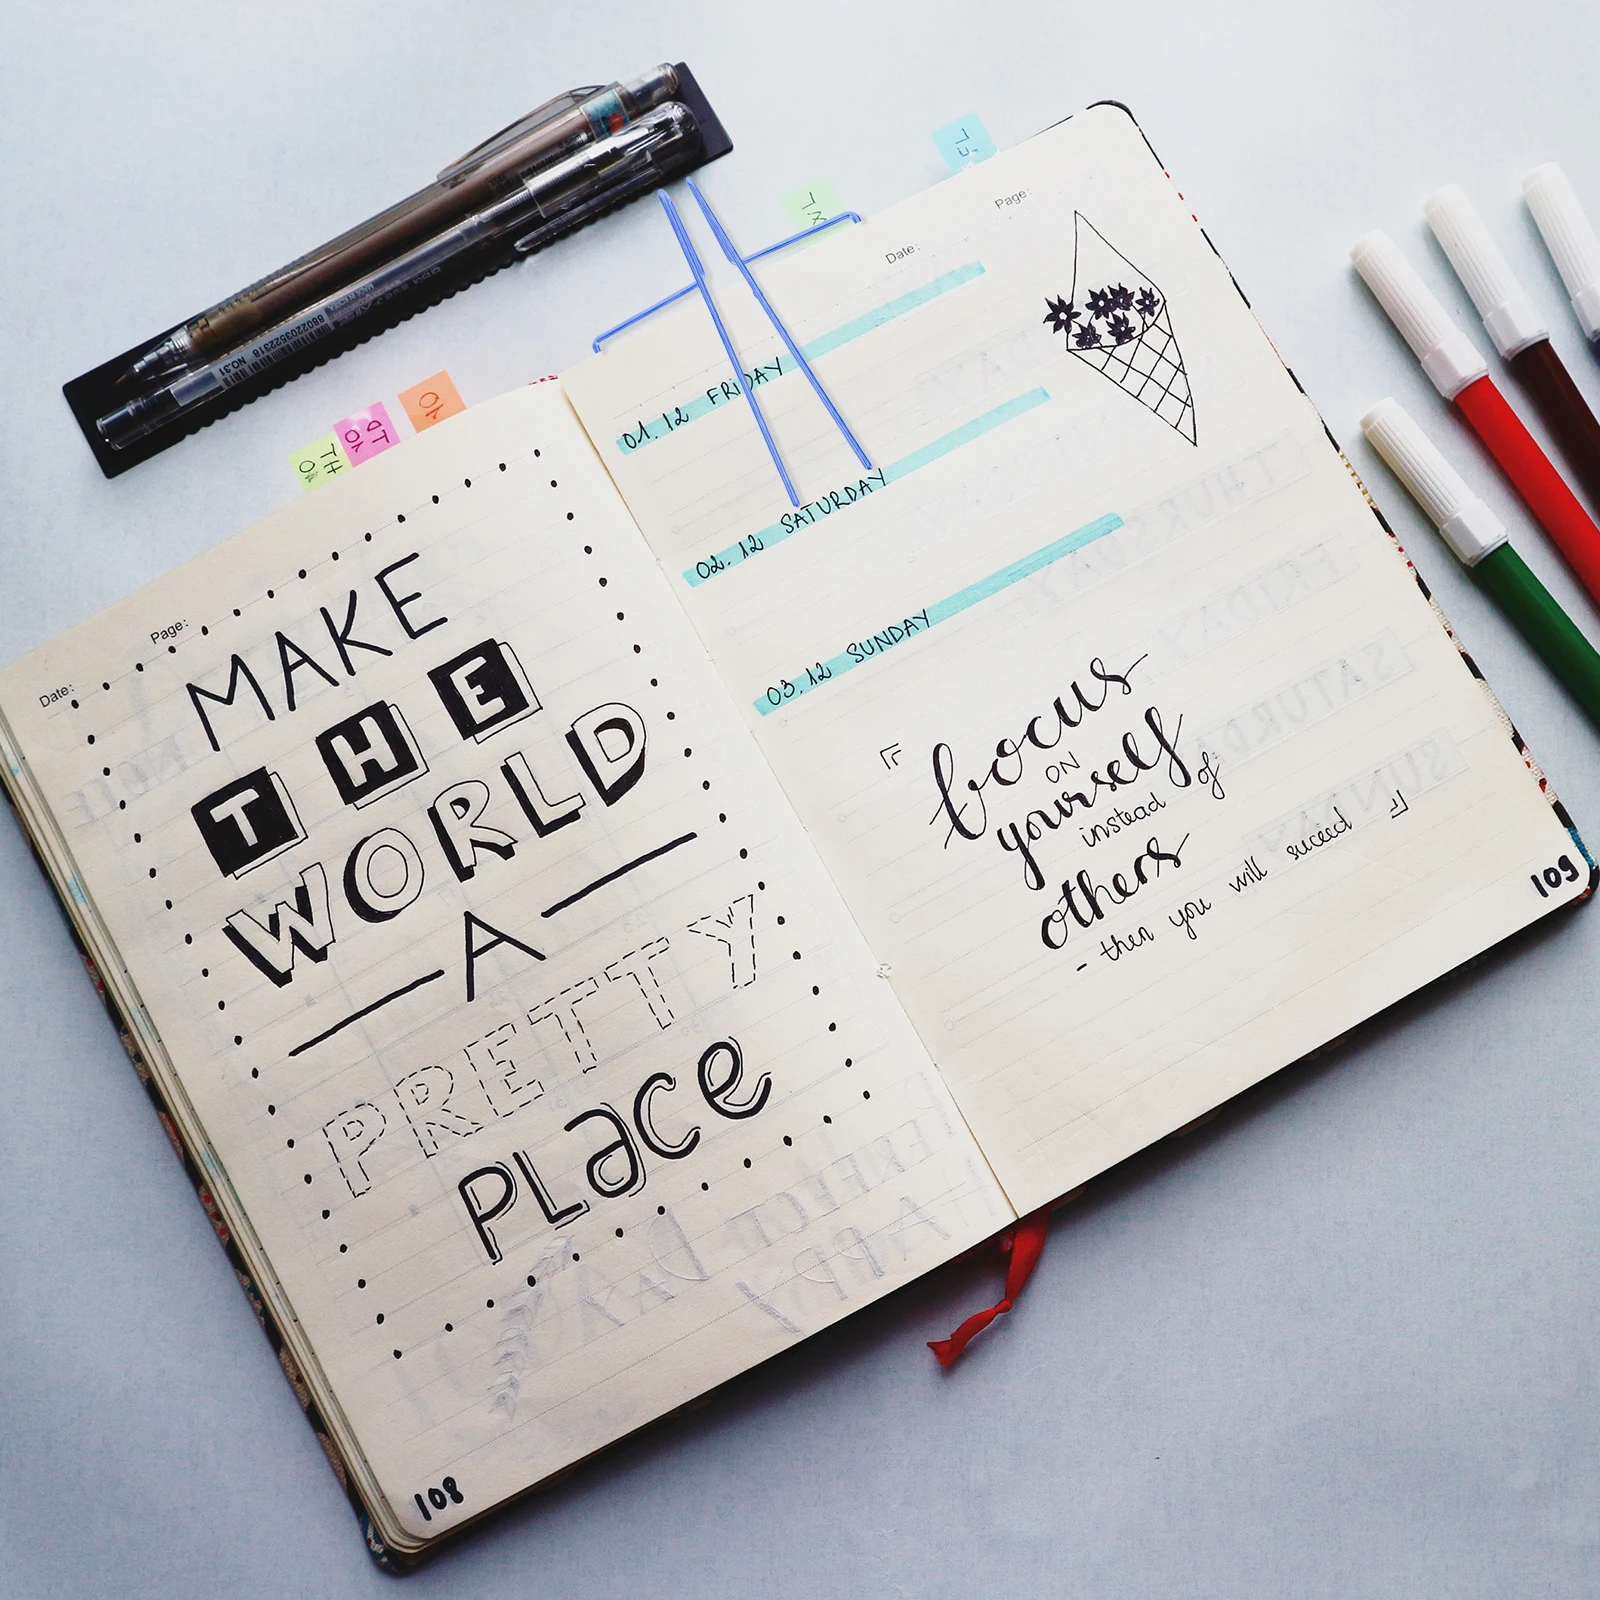 Page:
Date:
MAKE
THE
WORLD
A
PRETTY
PLace
108
Page:
Date:
01.12 FRIDAY
02.12 SATURDAY
03.12 SUNDAY
focus
ON
yourself
instead of
others
- then you will suceed
109
NO.31
8802203522318